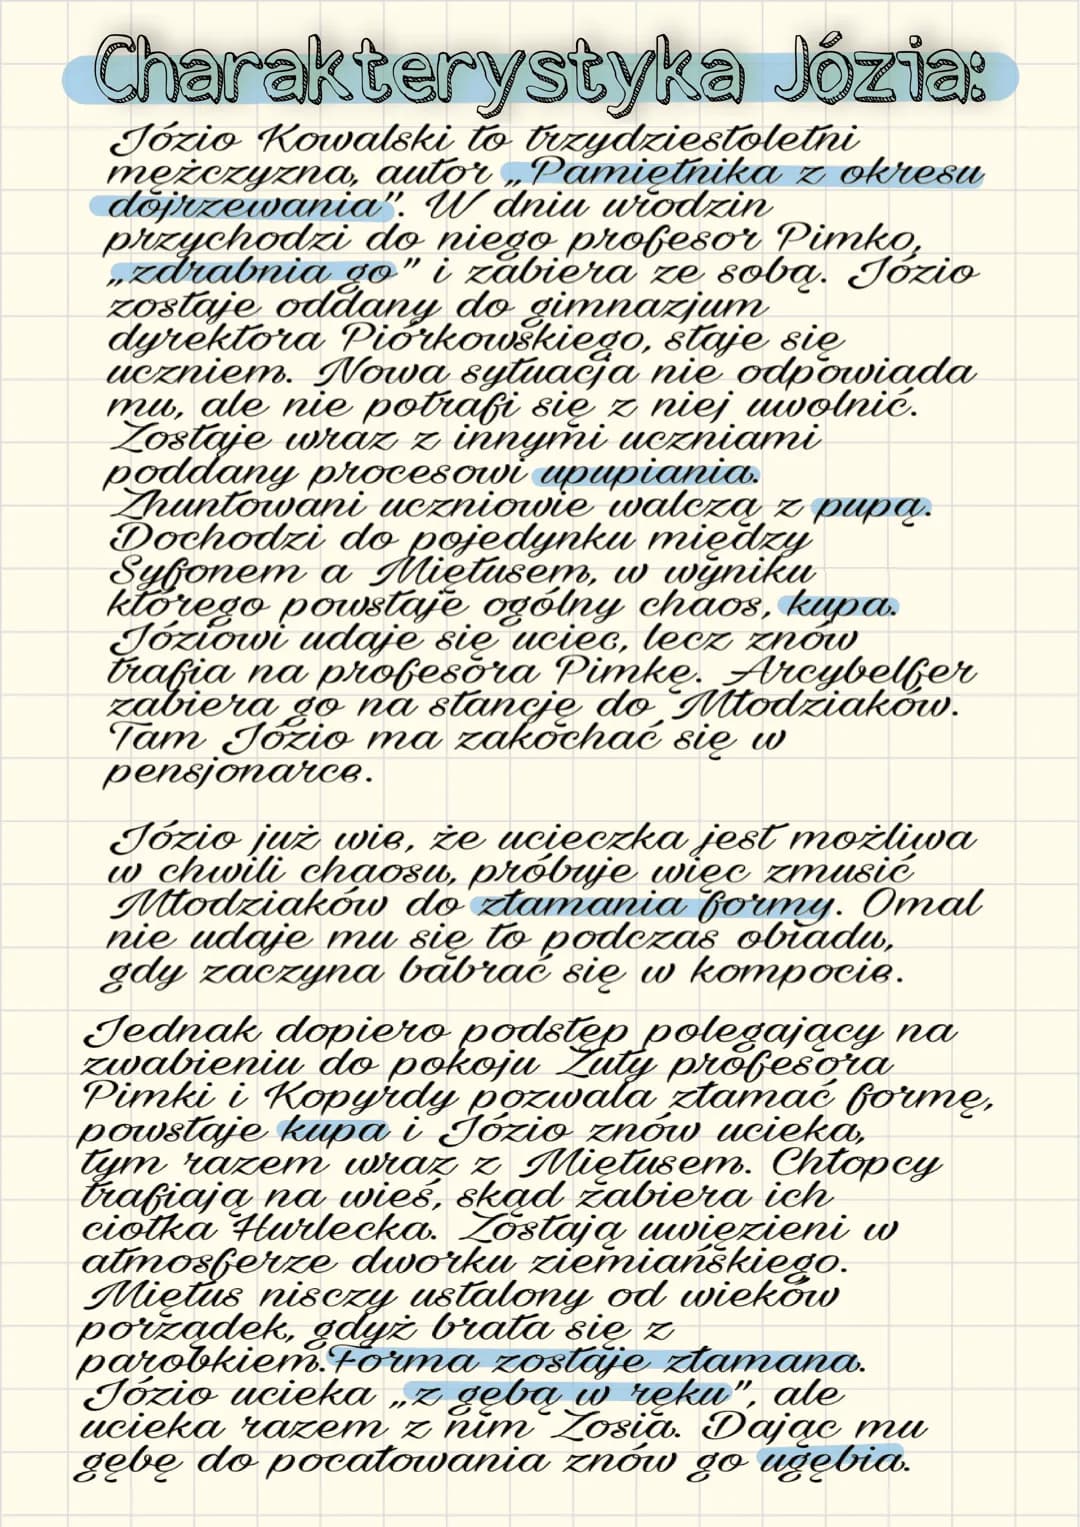 Charakterystyka Józia:
Józio Kowalski to trzydziestoletni
mężczyzna, autor „Pamiętnika z okresu
dojrzewania". W dniu urodzin
przychodzi do niego profesor Pimko,
„zdrabnia go" i zabiera ze sobą. Józio
zostaje oddany do gimnazjum
dyrektora Piórkowskiego, staje się
uczniem. Nowa sytuacja nie odpowiada
mu, ale nie potrafi się z niej uwolnić.
Zostaje wraz z innymi uczniami
poddany procesowi upupiania.
Zhuntowani uczniowie walczą z pupą.
Dochodzi do pojedynku między
Syfonem a Miętusem, w wyniku
którego powstaje ogólny chaos, kupa.
Józiowi udaje się uciec, lecz znów
trafia na profesora Pimkę. Arcybelfer
zabiera go na stancję do Młodziaków.
Tam Józio ma zakochać się w
pensjonarce.
Józio już wie, że ucieczka jest możliwa
w chwili chaosu, próbuje więc zmusić
Młodziaków do złamania formy. Omal
nie udaje mu się to podczas obiadu,
gdy zaczyna babrać się w kompocie.
Jednak dopiero podstęp polegający na
zwabieniu do pokoju Zuty profesora
Pimki i Kopyrdy pozwala złamać formę,
powstaje kupa i Józio znów ucieka,
tym razem wraz z Miętusem. Chłopcy
trafiają na wieś, skąd zabiera ich
ciotka Hurlecka. Zostają uwięzieni w
atmosferze dworku ziemiańskiego.
Miętus nisczy ustalony od wieków
porządek, gdyż brata się z
parobkiem.Forma zostaje złamana.
Józio ucieka „z gębą w ręku", ale
ucieka razem z nim Zosia. Dając mu
gębę do pocałowania znów go ugębia.